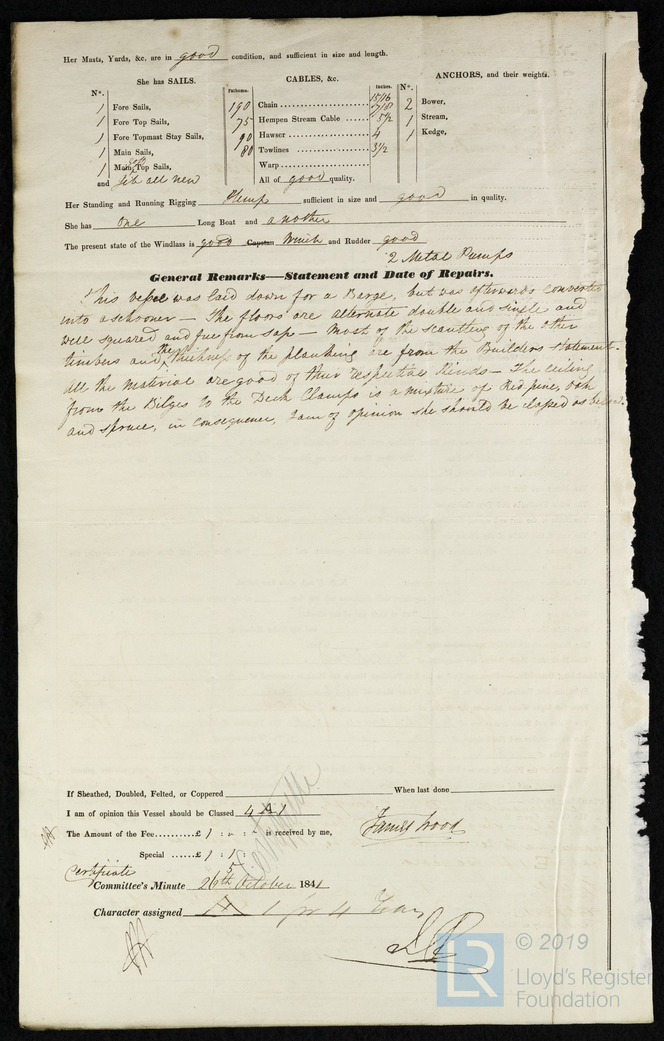 Her Masts, Yards, &c. are in good condition, and sufficient in size and length.
She has SAILS.
CABLES, &c.
ANCHORS, and their weights.
N°.
Fathoms.
Inches.
N°.
1 Fore Sails,
190 Chain 15/16
2 Bower,
1 Fore Top Sails,
75 Hempen Stream Cable 5 1/2
1 Stream,
1 Fore Topmast Stay Sails,
90 Hawser 4
1 Kedge,
1 Main Sails,
80 Towlines 3 1/2
1 Main Top Sails,
Warp
and Jib all new
All of good quality.
Her Standing and Running Rigging Hemp sufficient in size and good in quality.
She has One Long Boat and another
The present state of the Windlass is good Capstan Winch and Rudder good
2 Metal Pumps
General Remarks—Statement and Date of Repairs.
This vessel was laid down for a Barge, but was afterwards converted
into a schooner — The floors are alternate double and single and
well squared and free from sap — Most of the scantling of the other
timbers and the thickness of the planking are from the Builders statement.
All the material are good of their respective kinds — The ceiling
from the Bilges to the Deck Clamps is a mixture of Red pine, oak
and spruce, in consequence, I am of opinion she should be classed as below.
If Sheathed, Doubled, Felted, or Coppered When last done
I am of opinion this Vessel should be Classed 4 A 1
The Amount of the Fee £ 1 : - : - is received by me,
James Wood
Special £ 1 : 1 :
Certificate
Committee's Minute 26th October 1841
Character assigned A 1 for 4 Years
© 2019
LR
Lloyd's Register
Foundation